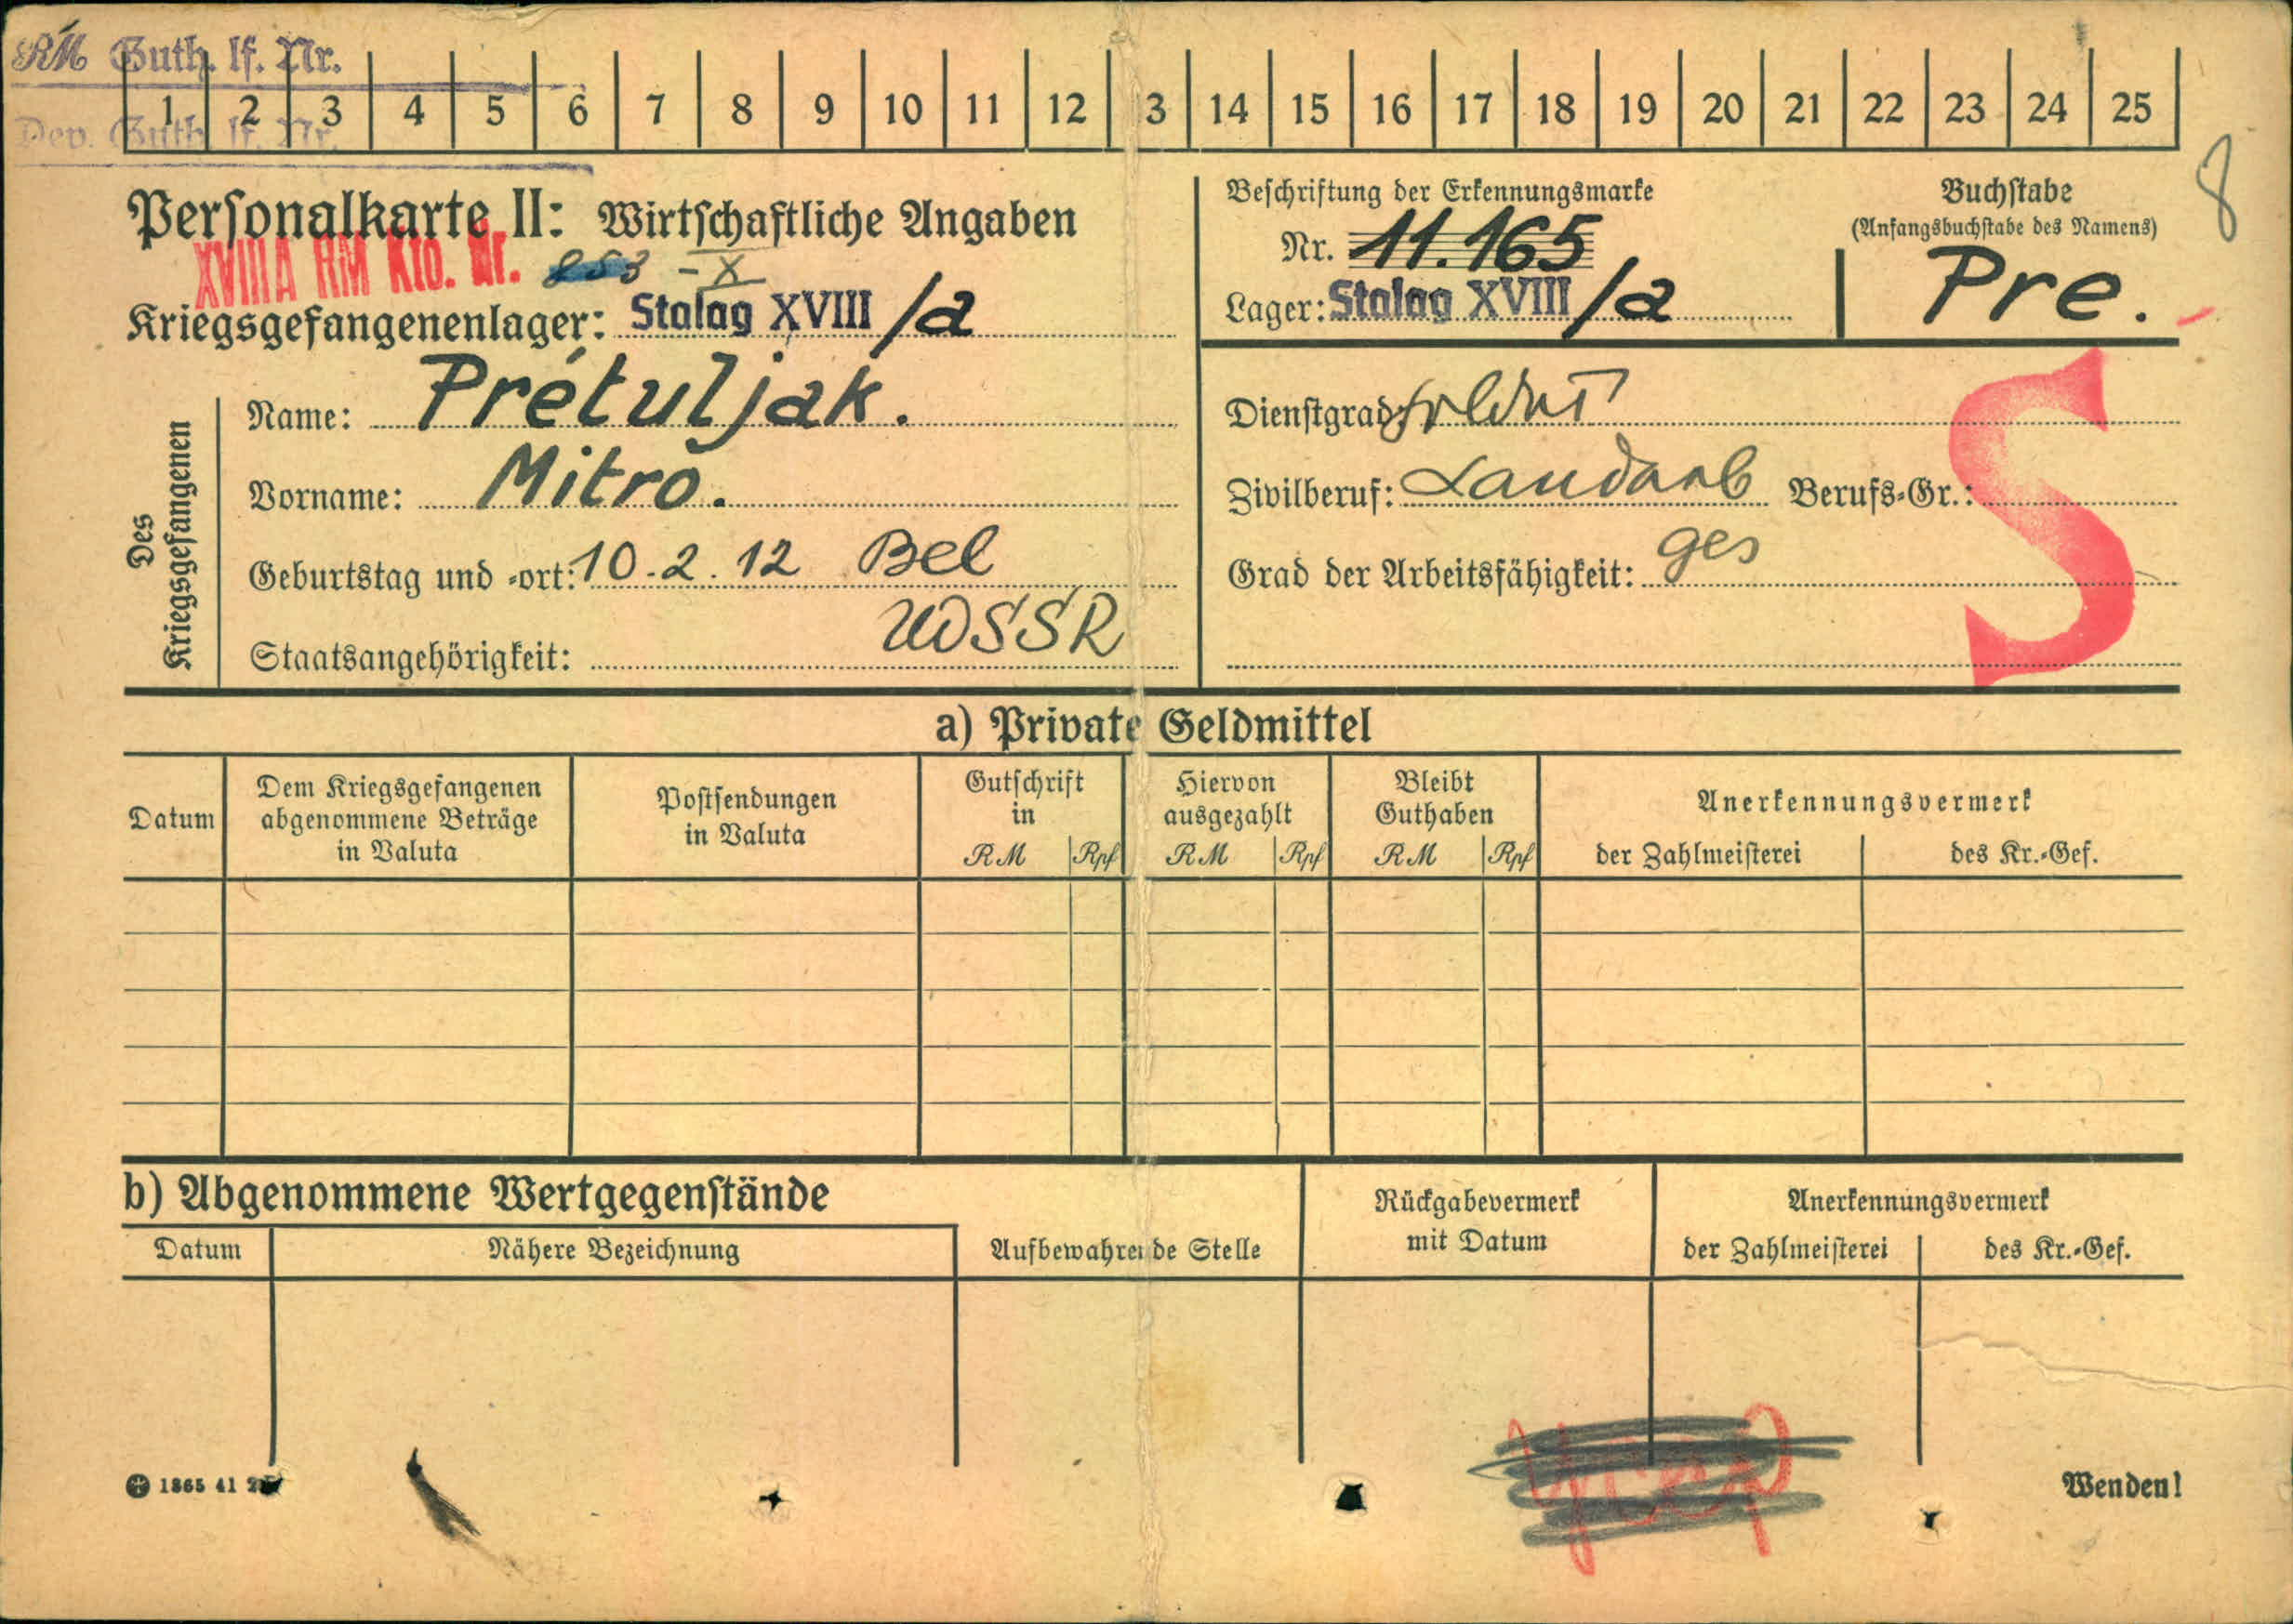 RM Guth. lf. Nr.
1 2 3 4 5 6 7 8 9 10 11 12 3 14 15 16 17 18 19 20 21 22 23 24 25
Dev. Guth. lf. Nr.
8
Personalkarte II: Wirtschaftliche Angaben
XVIII A RM Kto. Nr. 853 - X
Kriegsgefangenenlager: Stalag XVIII /a
Beschriftung der Erkennungsmarke
Nr. 11.165
Lager: Stalag XVIII /a
Buchstabe
(Anfangsbuchstabe des Namens)
Pre.
Des Kriegsgefangenen
Name: Prétuljak.
Vorname: Mitro.
Geburtstag und -ort: 10.2.12 Bel
Staatsangehörigkeit: UdSSR
Dienstgrad: Soldat
Zivilberuf: Landarb Berufs-Gr.:
Grad der Arbeitsfähigkeit: ges
S
a) Private Geldmittel
Datum
Dem Kriegsgefangenen
abgenommene Beträge
in Valuta
Postsendungen
in Valuta
Gutschrift
in
RM Rpf
Hiervon
ausgezahlt
RM Rpf
Bleibt
Guthaben
RM Rpf
Anerkennungsvermerk
der Zahlmeisterei des Kr.-Gef.
b) Abgenommene Wertgegenstände
Datum Nähere Bezeichnung
Aufbewahrende Stelle
Rückgabevermerk
mit Datum
Anerkennungsvermerk
der Zahlmeisterei des Kr.-Gef.
1865 41
Wenden!